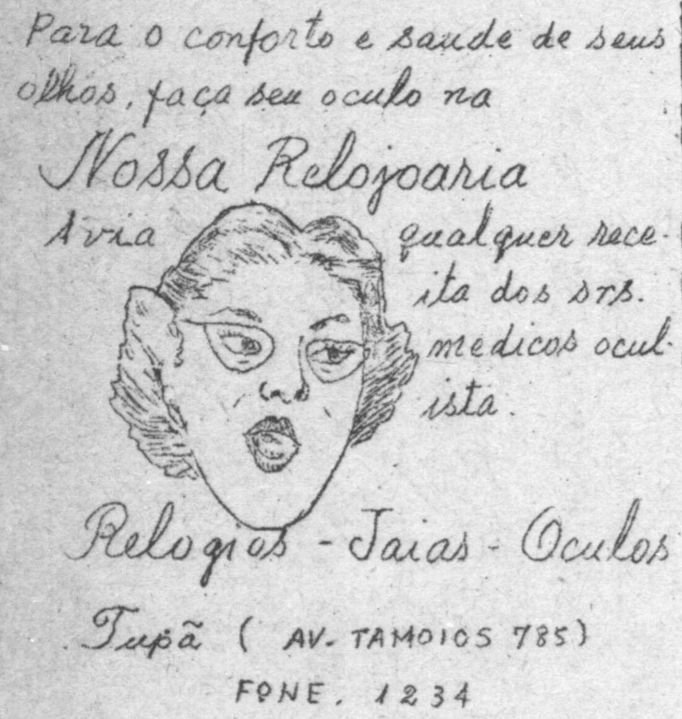 Para o conforto e saude de seus
olhos, faça seu oculo na
Nossa Relojoaria
Avia qualquer rece-
ita dos srs.
medicos ocul-
ista.
Relogios - Jaias - Oculos
Tupã ( AV. TAMOIOS 785)
FONE. 1234